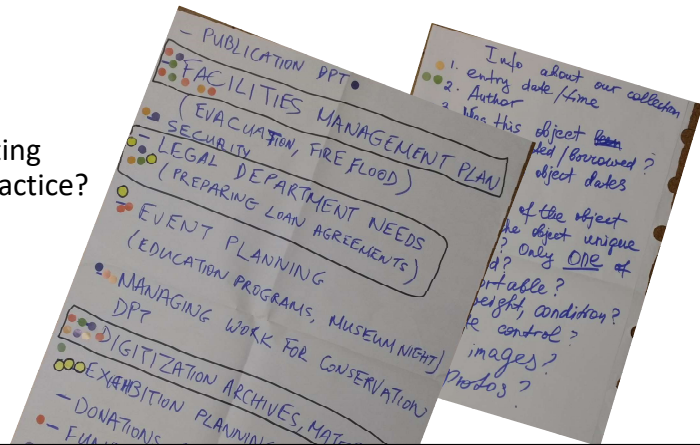 ing
actice?
- PUBLICATION DPT.
- FACILITIES MANAGEMENT PLAN
(EVACUATION, FIRE, FLOOD)
SECURITY
- LEGAL DEPARTMENT NEEDS
(PREPARING LOAN AGREEMENTS)
- EVENT PLANNING
(EDUCATION PROGRAMS, MUSEUM NIGHT)
MANAGING WORK FOR CONSERVATION
DPT
DIGITIZATION ARCHIVES,
EXHIBITION PLANNING
- DONATIONS
Info about our collection
1. entry date/time
2. Author
this object
/borrowed?
object dates
of the object
object unique
? Only ONE of
?
condition?
control?
images?
Photos?